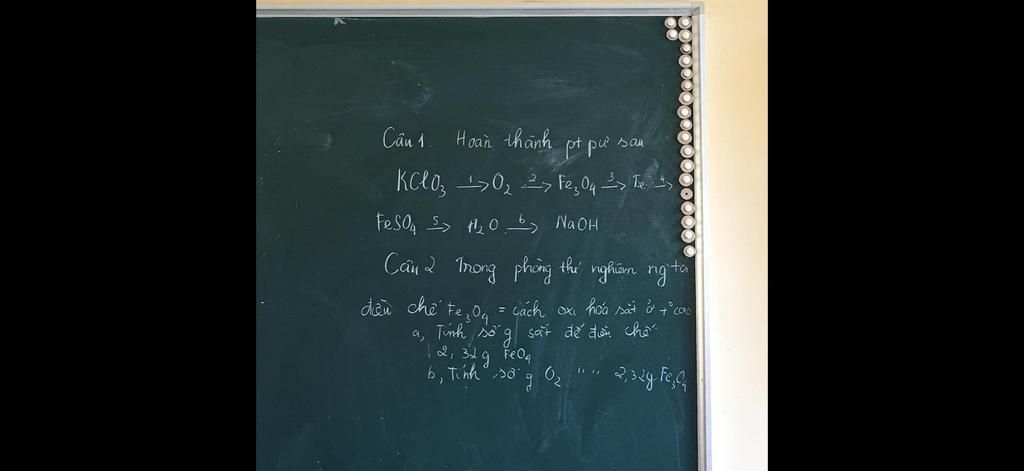 Câu 1. Hoàn thành pt pư sau
KClO₃ —1→ O₂ —2→ Fe₃O₄ —3→ Fe —4→
FeSO₄ —5→ H₂O —6→ NaOH
Câu 2 Trong phòng thí nghiệm ng ta
điều chế Fe₃O₄ = cách oxi hóa sắt ở t° cao
a, Tính số g sắt để điều chế
2,32g FeO₄
b, Tính số g O₂ " " 2,32g Fe₃O₄